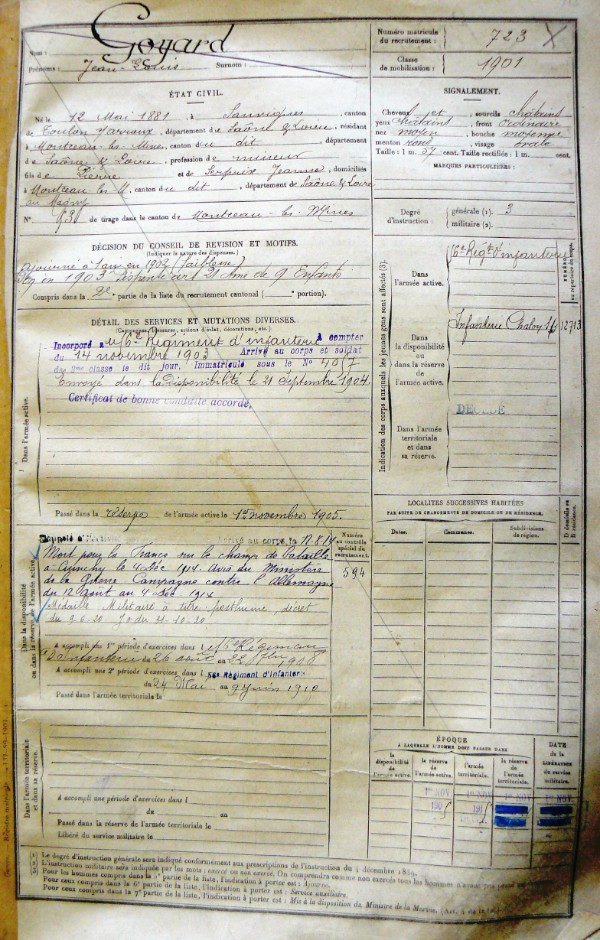 Nom : Goyard
Prénoms : Jean Louis Surnom :
Numéro matricule du recrutement : 723
Classe de mobilisation : 1901
ÉTAT CIVIL.
Né le 12 Mai 1881, à Sanvignes, canton
de Toulon s/Arroux, département de Saône & Loire, résidant
à Montceau-les-Mines, canton du dit, département
de Saône & Loire, profession de mineur
fils de Pierre et de Jeanne, domiciliés
à Montceau les M., canton du dit, département de Saône & Loire
au Magny
N° de tirage dans le canton de Montceau-les-Mines
SIGNALEMENT.
Cheveux et sourcils châtains
yeux front ordinaire
nez moyen, bouche moyenne
menton rond, visage ovale
Taille : 1 m. 57 cent. Taille rectifiée : 1 m. cent.
MARQUES PARTICULIÈRES :
Degré d'instruction : générale (1). 3
militaire (2).
DÉCISION DU CONSEIL DE RÉVISION ET MOTIFS.
(Indiquer la nature des dispenses.)
Ajourné à 1 an en 1902 (faiblesse)
en 1903 art 21 Aîné de 9 Enfants
Compris dans la 2e partie de la liste du recrutement cantonal ( portion).
Indication des corps auxquels les jeunes gens sont affectés (3).
Dans l'armée active.
56e Régt d'infanterie
Dans la disponibilité ou dans la réserve de l'armée active.
Infanterie Chalon s/S 12713
Dans l'armée territoriale et dans sa réserve.
DÉTAIL DES SERVICES ET MUTATIONS DIVERSES.
(Campagnes, blessures, actions d'éclat, décorations, etc.)
Dans l'armée active.
Incorporé au 56e Régiment d'infanterie à compter
du 14 novembre 1903 Arrivé au corps et soldat
de 2ème classe le dit jour, Immatriculé sous le N° 4087
Envoyé dans la disponibilité le 21 Septembre 1904
Certificat de bonne conduite accordé,
Passé dans la réserve de l'armée active le 1er novembre 1905.
LOCALITÉS SUCCESSIVES HABITÉES
PAR SUITE DE CHANGEMENTS DE DOMICILE OU DE RÉSIDENCE.
Dates. Communes. Subdivisions de région. D domicile ou R résidence.
Dans la disponibilité ou dans la réserve de l'armée active.
Rappelé à Arrivé au corps le 12.8.14
Numéro au contrôle spécial du recrutement.
594
Mort pour la France sur le champ de bataille
à Cuinchy le 4 Déc 1914. avis du Ministère
de la Guerre Campagne contre l'Allemagne
du 12 août au 4 Déc 1914
Médaille Militaire à titre posthume, décret
du 9.6.20 JO du 31.10.20
A accompli une 1re période d'exercices dans le 56e Régiment
d'Infanterie du 26 août au 22 7bre 1908
A accompli une 2e période d'exercices dans le 56e Régiment d'Infanterie
du 24 Mai au 9 juin 1910
Passé dans l'armée territoriale le
Dans l'armée territoriale et dans sa réserve.
A accompli une période d'exercices dans l
du au
Passé dans la réserve de l'armée territoriale le
Libéré du service militaire le
ÉPOQUE
À LAQUELLE L'HOMME DOIT PASSER DANS
la disponibilité de l'armée active. la réserve de l'armée active. l'armée territoriale. la réserve de l'armée territoriale.
DATE de la LIBÉRATION du service militaire.
1er NOV. 1er NOV. 1er NOV. 1er NOV.
Le degré d'instruction générale sera indiqué conformément aux prescriptions de l'instruction du 4 décembre 1889.
L'instruction militaire sera indiquée par les mots : exercé ou non exercé.
Pour les hommes compris dans la 5e partie de la liste, l'indication à porter est : Ajourné.
Pour ceux compris dans la 6e partie de la liste, l'indication à porter est : Service auxiliaire.
Pour ceux compris dans la 7e partie de la liste, l'indication à porter est : Mis à la disposition du Ministre de la Marine.